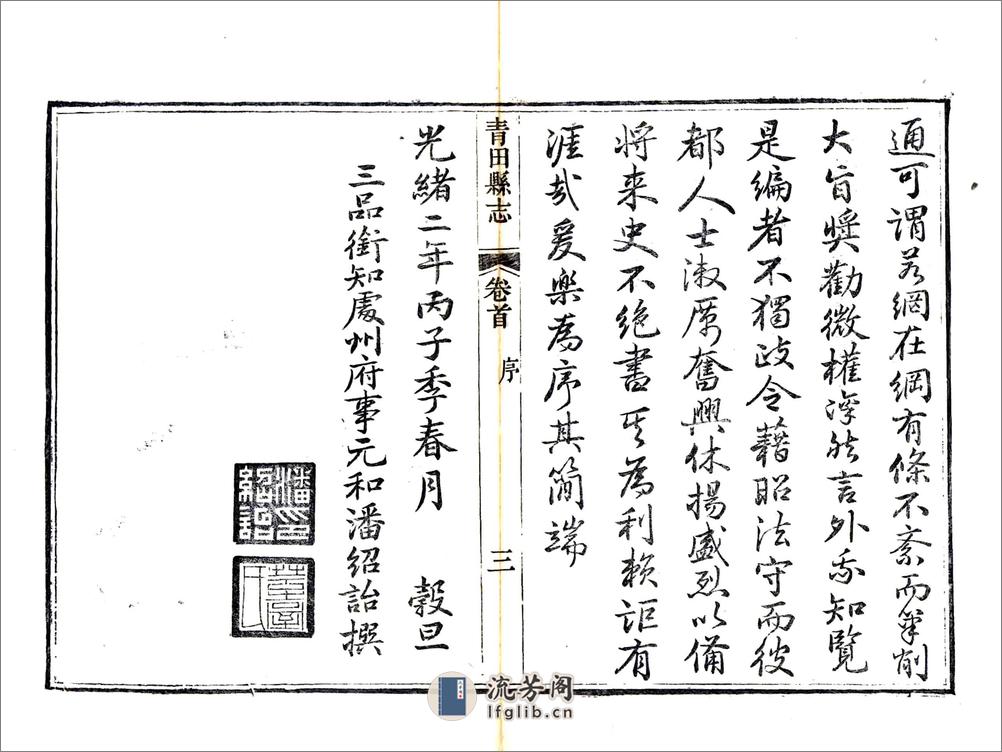 通可謂若網在綱有條不紊而筆削
大旨獎勸微權深於言外我知覽
是編者不獨政令藉昭法守而彼
都人士淑厲奮興休揚盛烈以備
將来史不絶書其為利賴詎有
涯哉爰樂為序其簡端
青田縣志 卷首 序 三
光緒二年丙子季春月 穀旦
三品銜知處州府事元和潘紹詒撰
潘印紹詒
流芳阁
lfglib.cn